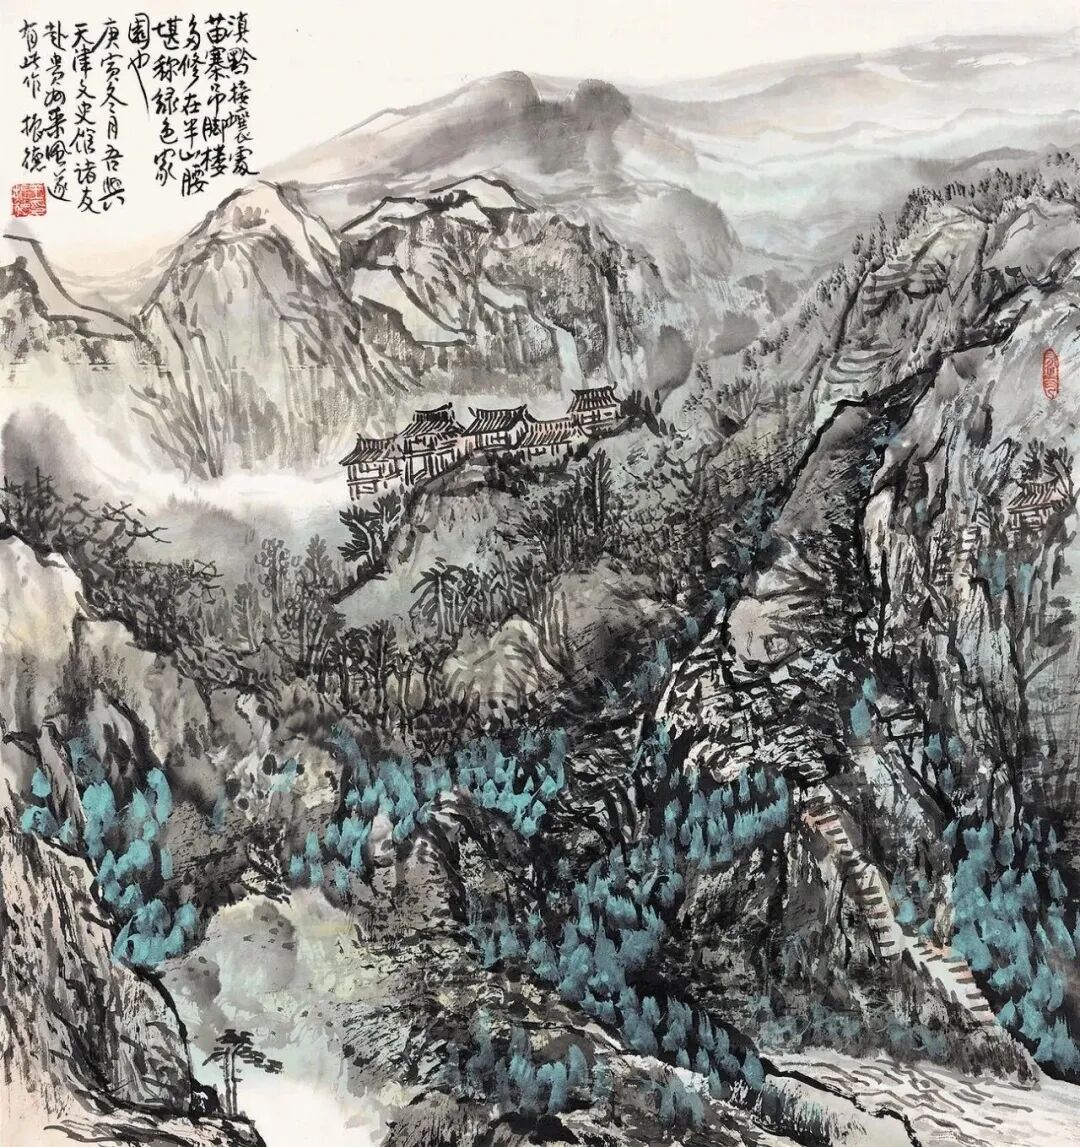 滇黔接壤處
苗寨吊脚楼
多修在半山腰
堪称绿色家
園也
庚寅冬月吾與
天津文史馆诸友
赴贵州采風遂
有此作 振德